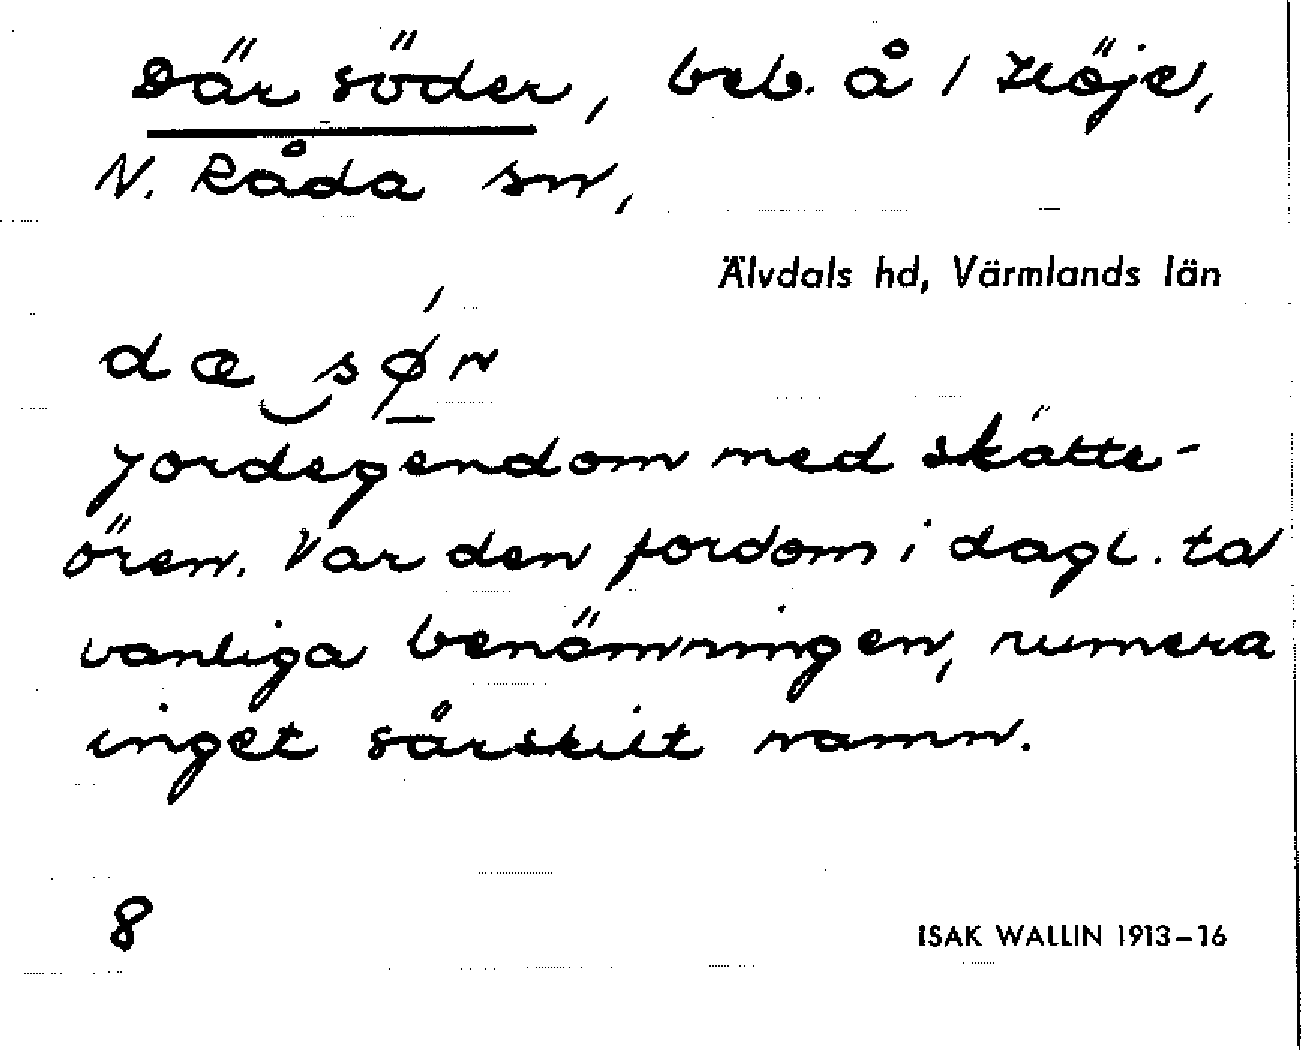 Där söder, beb. å 1 Höje,
N. Råda sn,
Älvdals hd, Värmlands län
dæ sǿn
jordegendom med skatte-
ören. Var den fordom i dagl. tal
vanliga benämningen, numera
inget särskilt namn.
8
ISAK WALLIN 1913–16